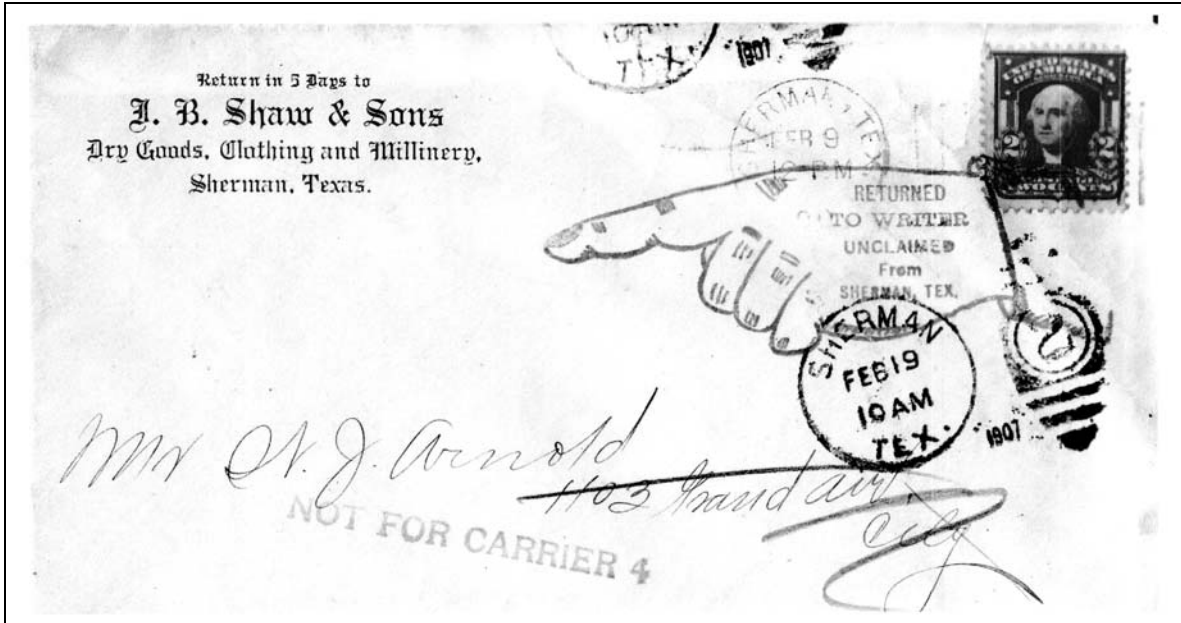 Return in 5 Days to
J. B. Shaw & Sons
Dry Goods, Clothing and Millinery,
Sherman, Texas.
TEX
1907
SHERMAN, TEX.
FEB 9
12 PM
1907
UNITED STATES
OF AMERICA
2 2
TWO CENTS
RETURNED
TO WRITER
UNCLAIMED
From
SHERMAN, TEX.
SHERMAN
FEB 19
10 AM
TEX.
1907
2
Mr J. Arnold
1103 Grand
City
NOT FOR CARRIER 4